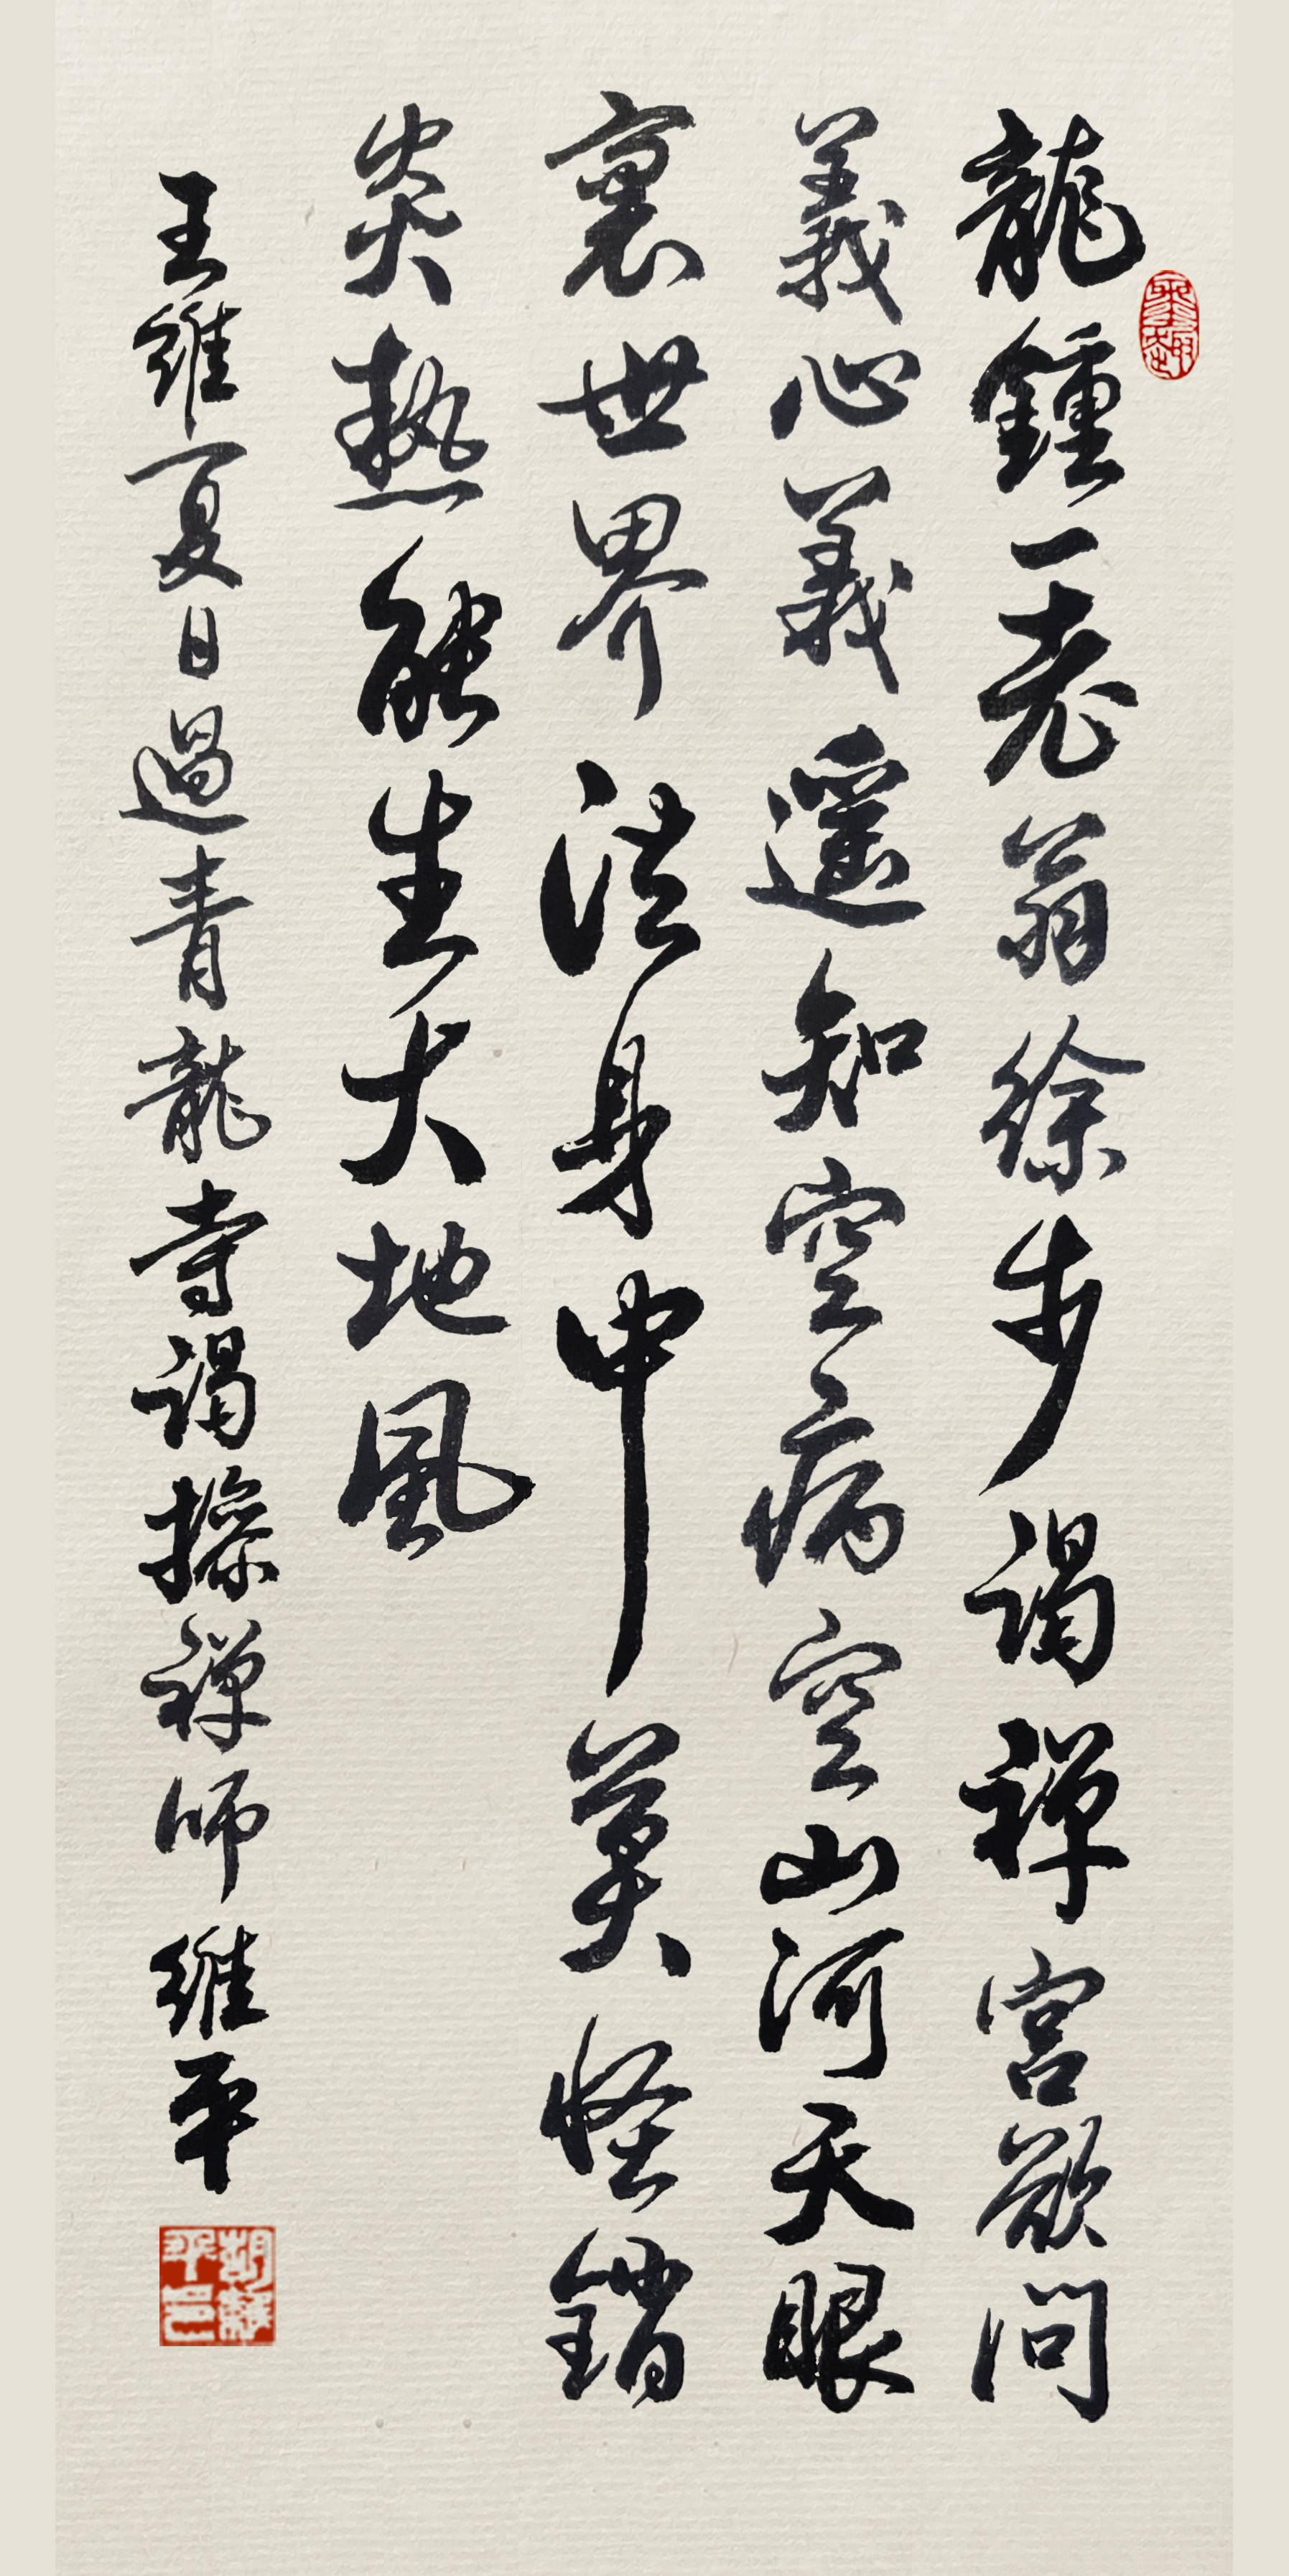 龍鍾一老翁徐步謁禪宮欲問
義心義遙知空病空山河天眼
裏世界法身中莫怪銷
炎熱能生大地風
王維夏日過青龍寺謁操禪師 維平
胡維平印